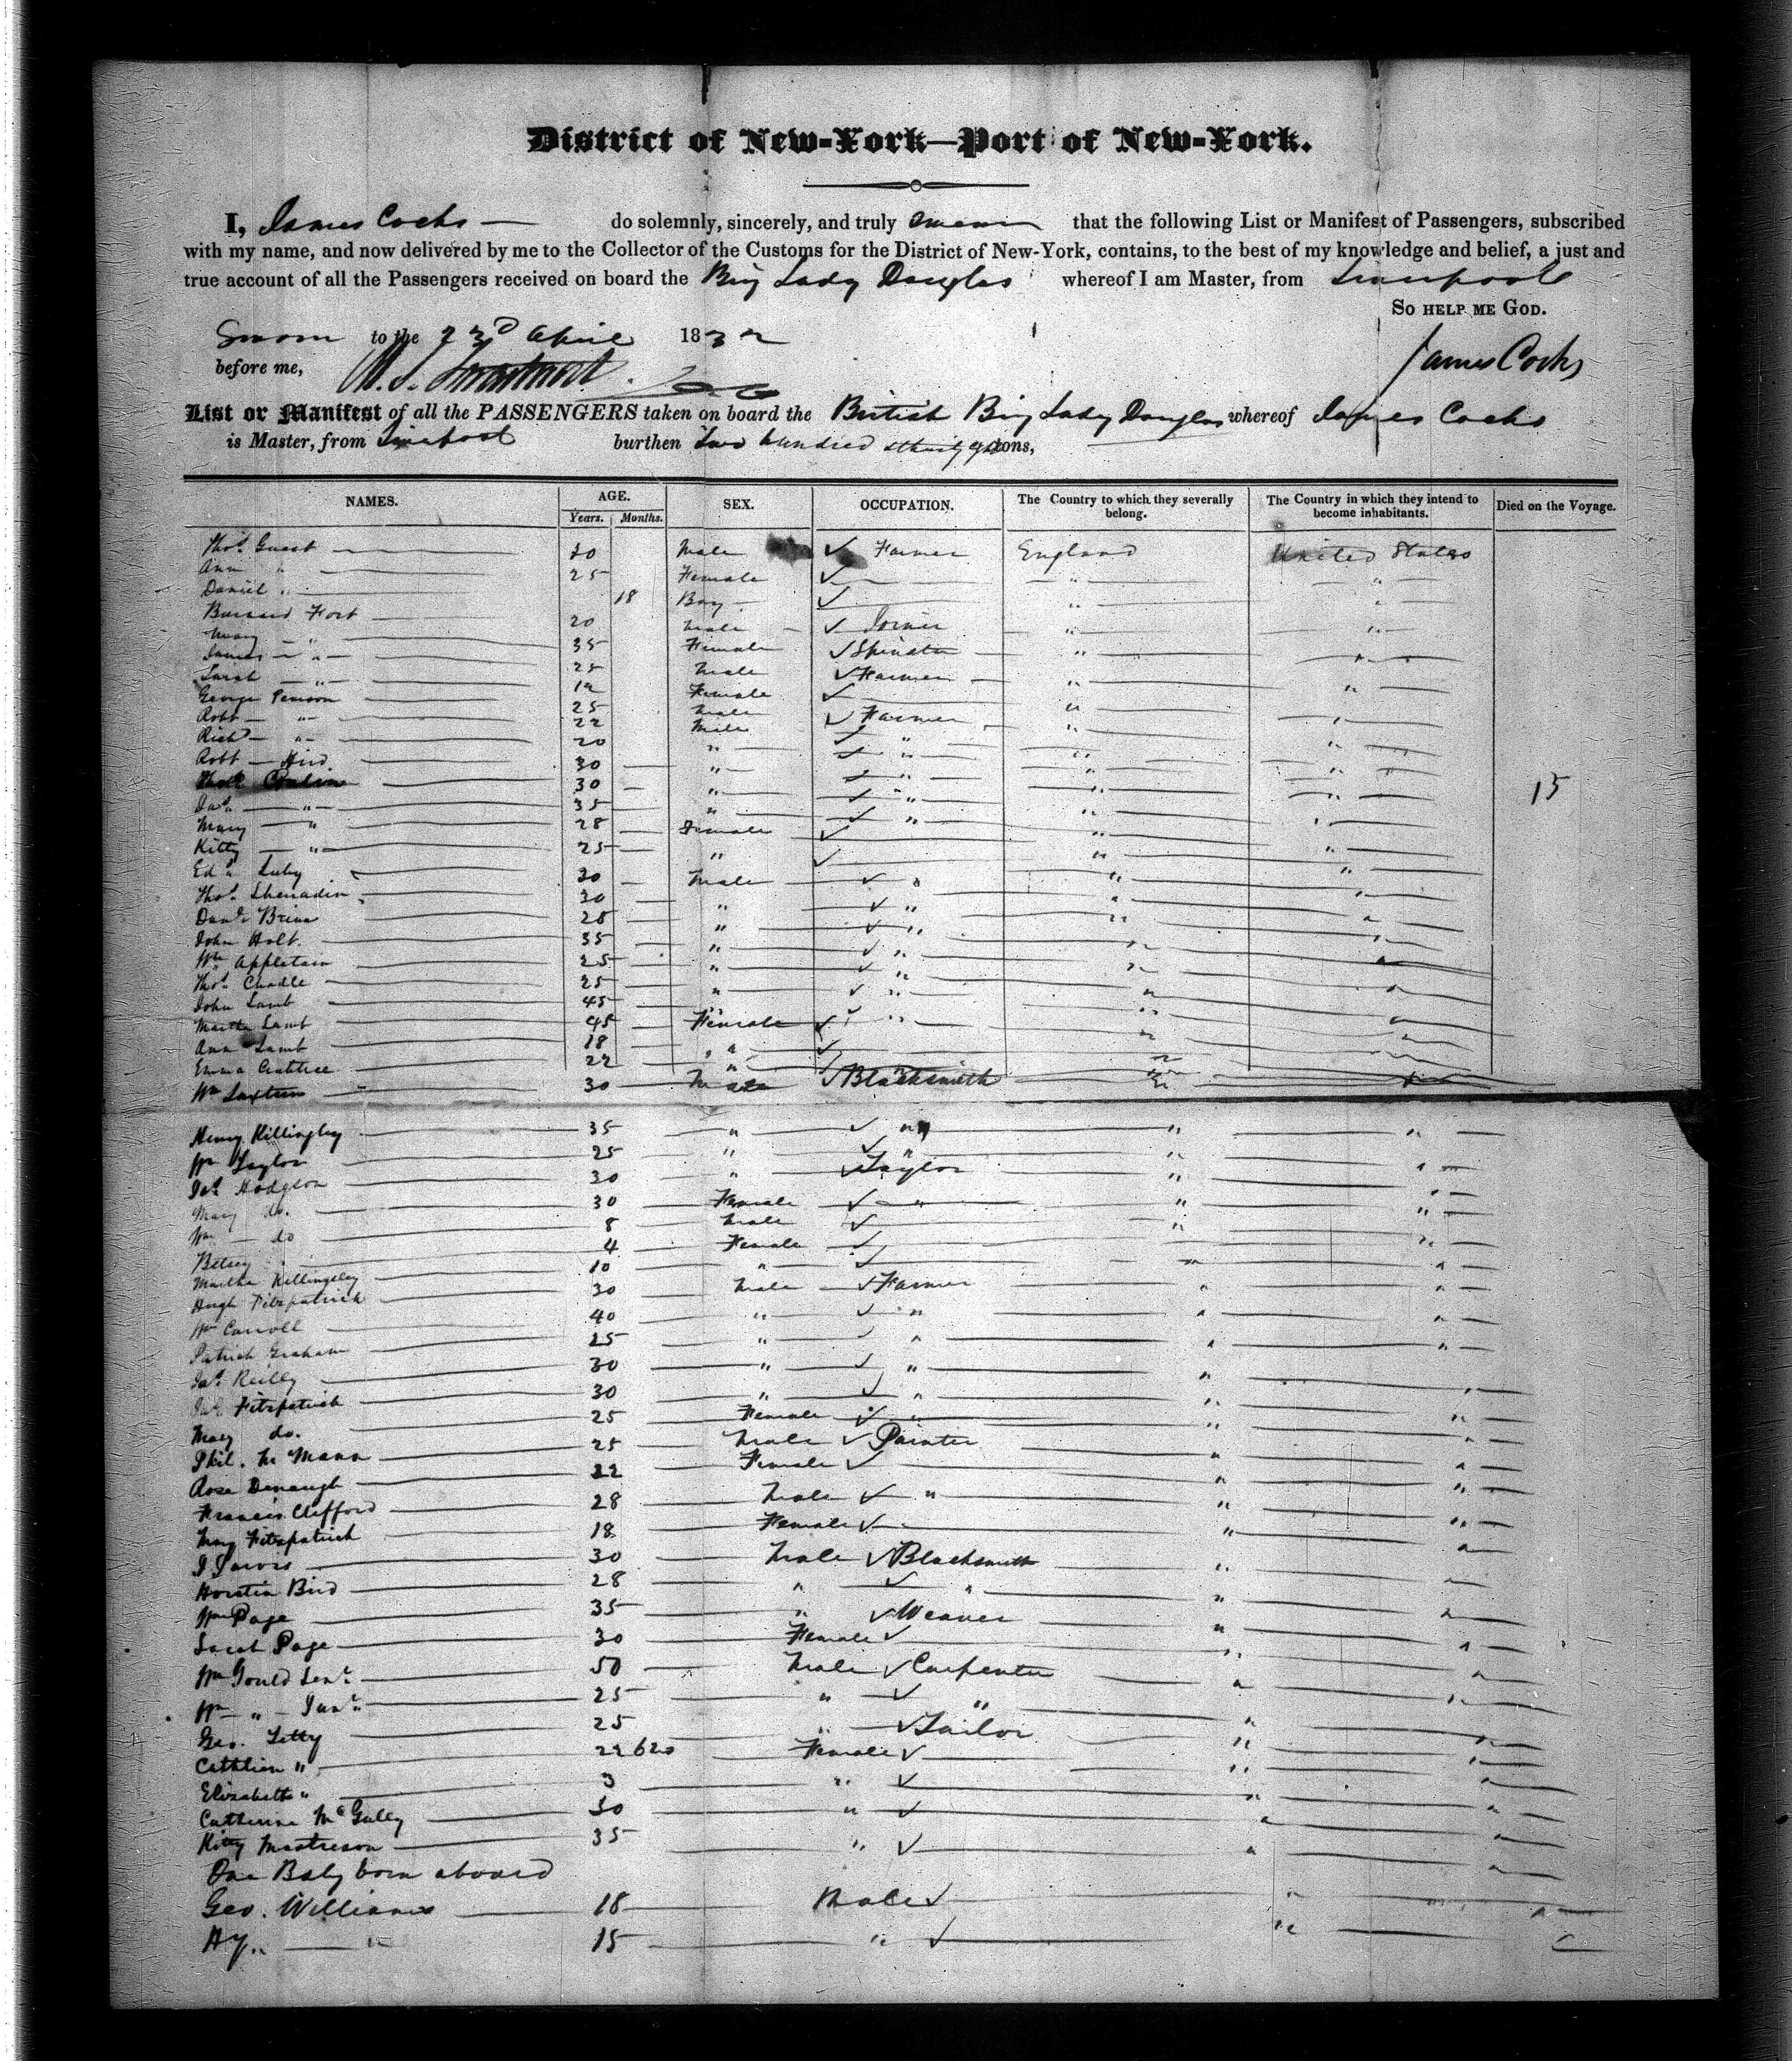 District of New-York—Port of New-York.
I, James Cocks — do solemnly, sincerely, and truly swear that the following List or Manifest of Passengers, subscribed
with my name, and now delivered by me to the Collector of the Customs for the District of New-York, contains, to the best of my knowledge and belief, a just and
true account of all the Passengers received on board the Brig Lady Douglas whereof I am Master, from Liverpool
So help me God.
Sworn to the 23d April 1832
before me,
James Cocks
List or Manifest of all the PASSENGERS taken on board the British Brig Lady Douglas whereof James Cocks
is Master, from Liverpool burthen Two hundred & thirty tons,
NAMES. AGE. SEX. OCCUPATION. The Country to which they severally belong. The Country in which they intend to become inhabitants. Died on the Voyage.
Years. Months.
Thos. Guest 30 Male ✓ Farmer England United States
Ann " 25 Female ✓ " "
Daniel " 18 Boy ✓ " "
Barnard Fort 20 Male ✓ Joiner " "
Mary " 35 Female ✓ Spinster " "
James " 25 Male ✓ Farmer " "
Sarah " 12 Female ✓ "
George Pearson 25 Male ✓ Farmer " "
Robt " 22 Male ✓ " " "
Richd " 20 " ✓ " " "
Robt Hird 30 " ✓ " " "
30 " ✓ " " " 15
Jas. " 35 " ✓ " " "
Mary " 28 Female ✓ " "
Kitty " 25 " ✓ " "
Edwd. Luby 30 Male ✓ " " "
Thos. Sheriadin 30 " ✓ " " "
Danl. Brian 28 " ✓ " " "
John Holt 35 " ✓ " " "
Wm Appleton 25 " ✓ " " "
Thos. Chadle 25 " ✓ " " "
John Lamb 45 " ✓ " " "
Martha Lamb 45 Female ✓ " "
Ann Lamb 18 " ✓ " "
Emma Crabtree 22 " ✓ " "
Wm Laxton 30 Male ✓ Blacksmith " "
Henry Killingley 35 " ✓ " " "
Wm Taylor 25 " ✓ " " "
Jas. Hodgson 30 " ✓ Taylor " "
Mary do. 30 Female ✓ " " "
Wm — do 8 Male ✓ " "
Betsey 4 Female ✓ "
Martha Killingsley 10 " ✓ " "
Hugh Fitzpatrick 30 Male ✓ Farmer " "
Wm Carroll 40 " ✓ " " "
Patrick Graham 25 " ✓ " " "
Jas. Reilly 30 " ✓ " " "
Jas. Fitzpatrick 30 " ✓ " " "
Mary do. 25 Female ✓ " " "
Phil. McMann 25 Male ✓ Painter " "
Rose Denaugh 22 Female ✓ " "
Francis Clifford 28 Male ✓ " " "
Mary Fitzpatrick 18 Female ✓ " "
J Jarvis 30 Male ✓ Blacksmith " "
Horatio Bird 28 " ✓ " " "
Wm Page 35 " ✓ Weaver " "
Sarah Page 30 Female ✓ " "
Wm Gould Senr. 50 Male ✓ Carpenter " "
Wm " Junr. 25 " ✓ " " "
Geo. Letty 25 " ✓ Tailor " "
Cathlien " 22 620 Female ✓ " "
Elizabeth " 3 " ✓ " "
Catherine McGully 30 " ✓ " "
Kitty Mastreson 35 " ✓ " "
One Baby born aboard
Geo. Williams 18 Male ✓ " "
Hy. " 15 " ✓ "